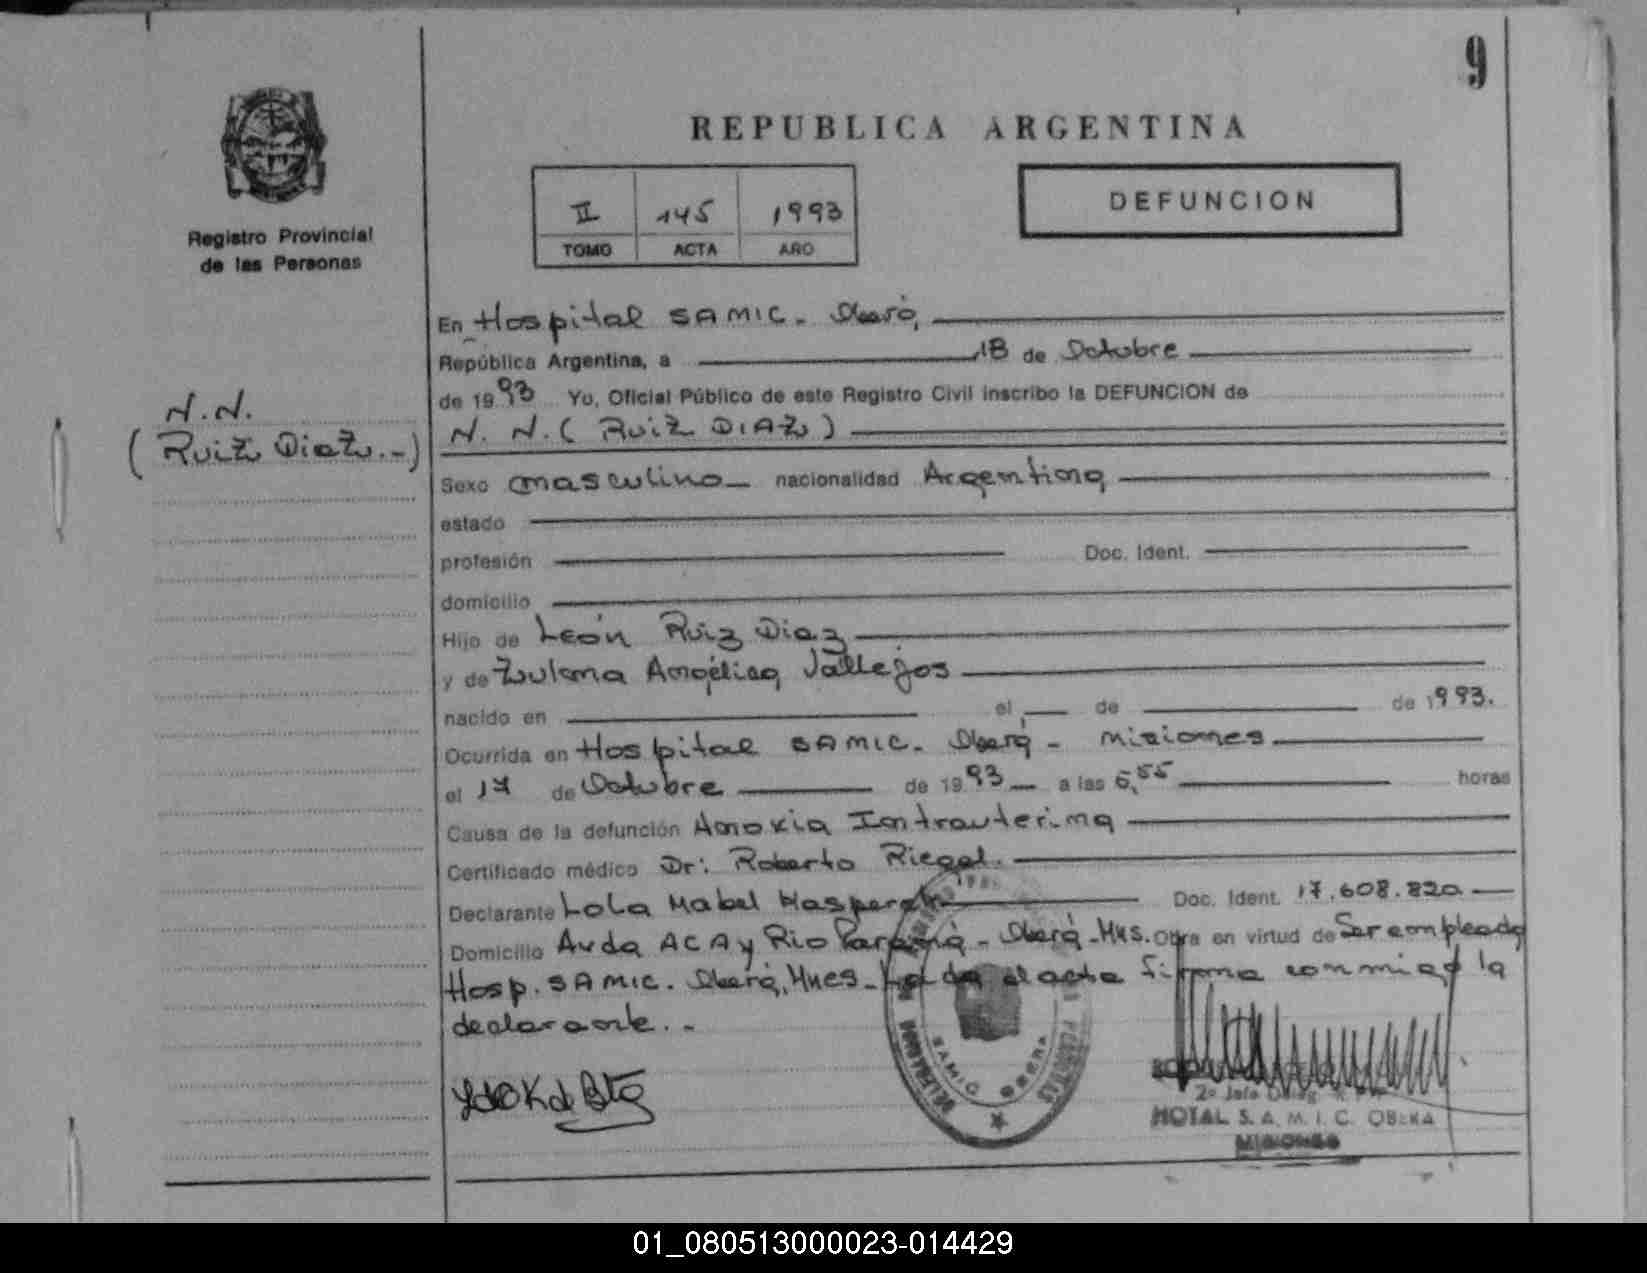 9
REPUBLICA ARGENTINA
DEFUNCION
II 145 1993
TOMO ACTA AÑO
Registro Provincial
de las Personas
N.N.
(Ruiz Diaz.-)
En Hospital SAMIC. Oberá,
República Argentina, a 18 de Octubre
de 1993 Yo, Oficial Público de este Registro Civil inscribo la DEFUNCION de
N. N. ( Ruiz DIAZ )
Sexo masculino nacionalidad Argentina
estado
profesión Doc. Ident.
domicilio
Hijo de León Ruiz Diaz
y de Zulema Angélica Vallejos
nacido en el de de 1993.
Ocurrida en Hospital SAMIC. Oberá - Misiones
el 17 de Octubre de 1993 a las 6,55 horas
Causa de la defunción Anoxia Intrauterina
Certificado médico Dr: Roberto Riegel.
Declarante Lola Mabel Doc. Ident. 17.608.820
Domicilio Avda ACA y Rio Paraná - Oberá - Mns. Obra en virtud de Ser empleada
Hosp. SAMIC. Oberá, Mnes. del acta firma conmigo la
declarante. -
SAMIC OBERA
2º Jefe
HOTAL S. A. M. I. C. OBERA
MISIONES
01_080513000023-014429